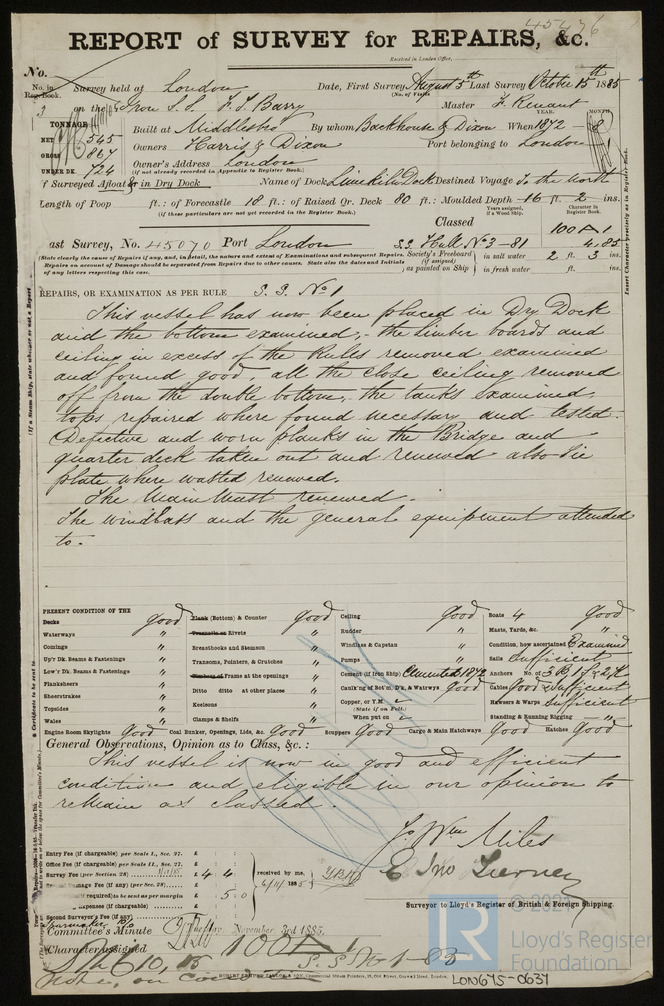 45476
REPORT of SURVEY for REPAIRS, &c.
Received in London Office,
No.
No. in Reg. Book.
Survey held at London Date, First Survey August 5th Last Survey October 15th 1885
(No. of Visits
on the Iron S.S. F. T. Barry Master F. Renaut
TONNAGE
YEAR. MONTH
NET 545
GROSS 867
UNDER DK. 724
Built at Middlesbro By whom Backhouse & Dixon When 1872 - 8
Owners Harris & Dixon Port belonging to London
Owner's Address London
(if not already recorded in Appendix to Register Book.)
if Surveyed Afloat or in Dry Dock Name of Dock Limekiln Dock Destined Voyage To the North
Length of Poop ft.: of Forecastle 18 ft.: of Raised Qr. Deck 80 ft.: Moulded Depth 16 ft. 2 ins.
(if these particulars are not yet recorded in the Register Book.)
Years assigned, if a Wood Ship.
Character in Register Book.
Classed 100 A 1
ast Survey, No. 45070 Port London S.S. Hull No 3 - 81 4,85
(State clearly the cause of Repairs if any, and, in detail, the nature and extent of Examinations and subsequent Repairs.
Repairs on account of Damage should be separated from Repairs due to other causes. State also the dates and Initials
of any letters respecting this case.
Society's Freeboard (if assigned) as painted on Ship
in salt water 2 ft. 3 ins.
in fresh water ft. ins.
REPAIRS, OR EXAMINATION AS PER RULE S.S. No 1
This vessel has now been placed in Dry Dock
and the bottom examined, - the limber boards and
ceiling in excess of the Rules removed examined
and found good, all the close ceiling removed
off from the double bottom, the tanks examined,
tops repaired where found necessary and tested.
Defective and worn planks in the Bridge and
quarter deck taken out and renewed also tie
plate where wasted renewed.
The Main Mast renewed.
The windlass and the general equipment attended
to.
PRESENT CONDITION OF THE
Decks good
Waterways "
Comings "
Up'r Dk. Beams & Fastenings "
Low'r Dk. Beams & Fastenings "
Planksheers "
Sheerstrakes "
Topsides "
Wales "
Engine Room Skylights Good
Plank (Bottom) & Counter good
Treenails or Rivets "
Breasthooks and Stemson "
Transoms, Pointers, & Crutches "
Timbers or Frames at the openings "
Ditto ditto at other places "
Keelsons "
Clamps & Shelfs "
Coal Bunker, Openings, Lids, &c. Good
Ceiling good
Rudder "
Windlass & Capstan "
Pumps "
Cement (if Iron Ship) Cemented 1872
Caulk'ng of Bot'm, D'k, & Watrwys Good
Copper, or Y.M.
(State if on Felt.)
When put on
Scuppers Good
Cargo & Main Hatchways Good
Boats 4 good
Masts, Yards, &c. "
Condition, how ascertained Examined
Sails Sufficient
Anchors No. of 3 B, 1 S, & 2 K
Cables Good & Sufficient
Hawsers & Warps Sufficient
Standing & Running Rigging "
Hatches Good
General Observations, Opinion as to Class, &c.:
This vessel is now in good and efficient
condition and eligible in our opinion to
remain as classed.
Jo. Wm Miles
E. Jno Tierney
Surveyor to Lloyd's Register of British & Foreign Shipping.
Entry Fee (if chargeable) per Scale I., Sec. 27. £
Office Fee (if chargeable) per Scale II., Sec. 27. £
Survey Fee (per Section 28) £ 4 4
Damage Fee (if any) (per Sec. 28) £
required) to be sent as per margin £ 5 0
Expenses (if chargeable) £
Second Surveyor's Fee (if any) £
received by me,
6/11/1885
Committee's Minute Tuesday November 3rd 1885.
Character assigned 100 A 1
S.S. No 1 - 85
ROBERT EDMUND TAYLOR & SON, Commercial Steam Printers, 19, Old Street, Goswell Road, London.
© 2021
LR
Lloyd's Register
Foundation
LON675-0637
(If a Steam Ship, state whether or not a Report
Insert Character precisely as in Register Book.
a Certificate to be sent to